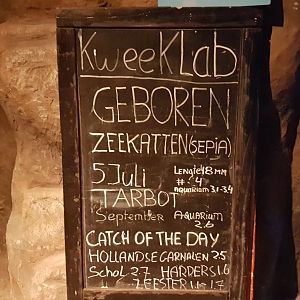 KweekLab
GEBOREN
ZEEKATTEN (SEPIA)
5 Juli LENGTE 18 MM
# 4
AQUARIUM 3.1-3.4
TARBOT
September AQUARIUM
2.6
CATCH OF THE DAY
HOLLANDSE GARNALEN 2.5
Schol 2.7 HARDERS 1.6
ZEESTER 1.1 - 1.7